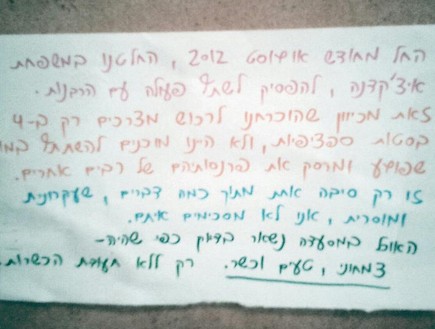 החל מחודש אוגוסט 2012, החלטנו במשפחת
איצ'קדנה, להפסיק לשתף פעולה עם הרבנות.
זאת מכיוון שהוכרחנו לרכוש מצרכים רק ב-4
בסטות ספציפיות, ולא היינו מוכנים להשתתף
שפוגע ומרסק את פרנסותיהם של רבים אחרים.
זו רק סיבה אחת מתוך כמה דברים, שעקרונית
ומוסרית, אנו לא מסכימים איתם.
האוכל במסעדה נשאר בדיוק כפי שהיה -
צמחוני, טעים וכשר. רק ללא תעודת הכשרות.